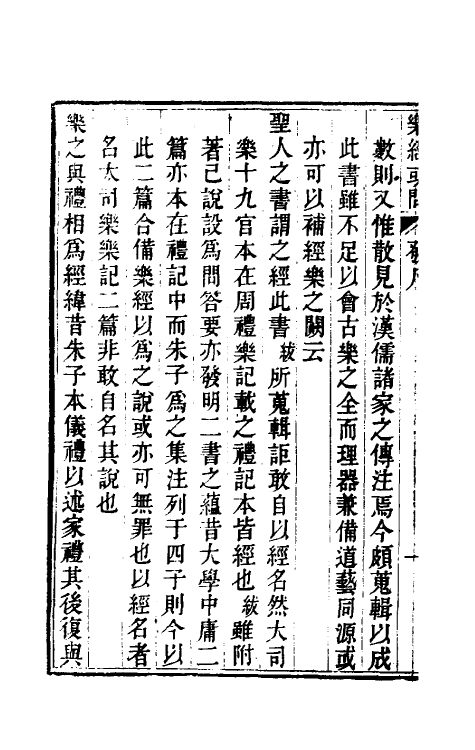 樂經或問
數則又惟散見於漢儒諸家之傳注焉今頗蒐輯以成
此書雖不足以會古樂之全而理器兼備道藝同源或
亦可以補經樂之闕云
聖人之書謂之經此書紱所蒐輯詎敢自以經名然大司
樂十九官本在周禮樂記載之禮記本皆經也紱雖附
著己說設爲問答要亦發明二書之蘊昔大學中庸二
篇亦本在禮記中而朱子爲之集注列于四子則今以
此二篇合備樂經以爲之說或亦可無罪也以經名者
名大司樂樂記二篇非敢自名其說也
樂之與禮相爲經緯昔朱子本儀禮以述家禮其後復與